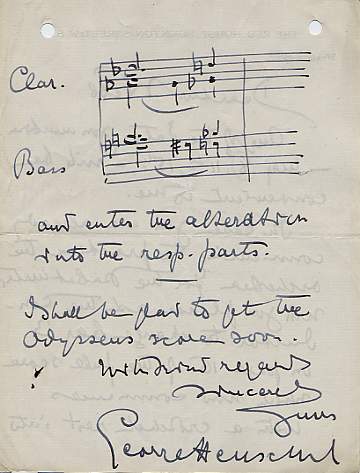 Clar.
Bass
and enter the alteration
into the resp. parts.
I shall be glad to get the
Odysseus score soon.
With kind regards
Sincerely
Yours
George Henschel